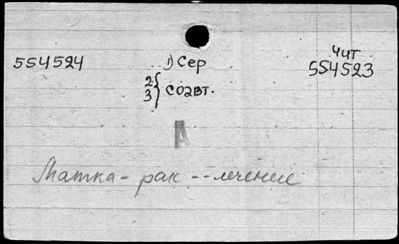 чит
554524 1) Сер 554523
2
3 } соавт.
А
Матка - рак -- лечение